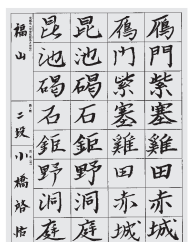 鴈門紫塞雞田赤城
鴈門紫塞雞田赤城
昆池碣石鉅野洞庭
昆池碣石鉅野洞庭
福山
二段 小橋